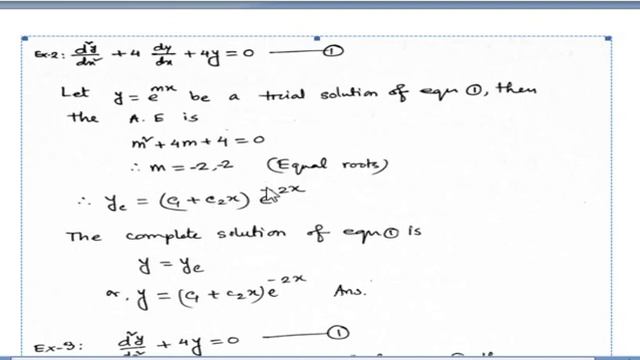 Ex-2: d²y/dx² + 4 dy/dx + 4y = 0 —— ①
Let y = e^mx be a trial solution of equn ①, then
the A.E is
m² + 4m + 4 = 0
∴ m = -2, -2 (Equal roots)
∴ y_c = (c₁ + c₂x) e^-2x
The complete solution of equn ① is
y = y_c
or, y = (c₁ + c₂x) e^-2x Ans.
Ex-3: d²y/dx² + 4y = 0 —— ①